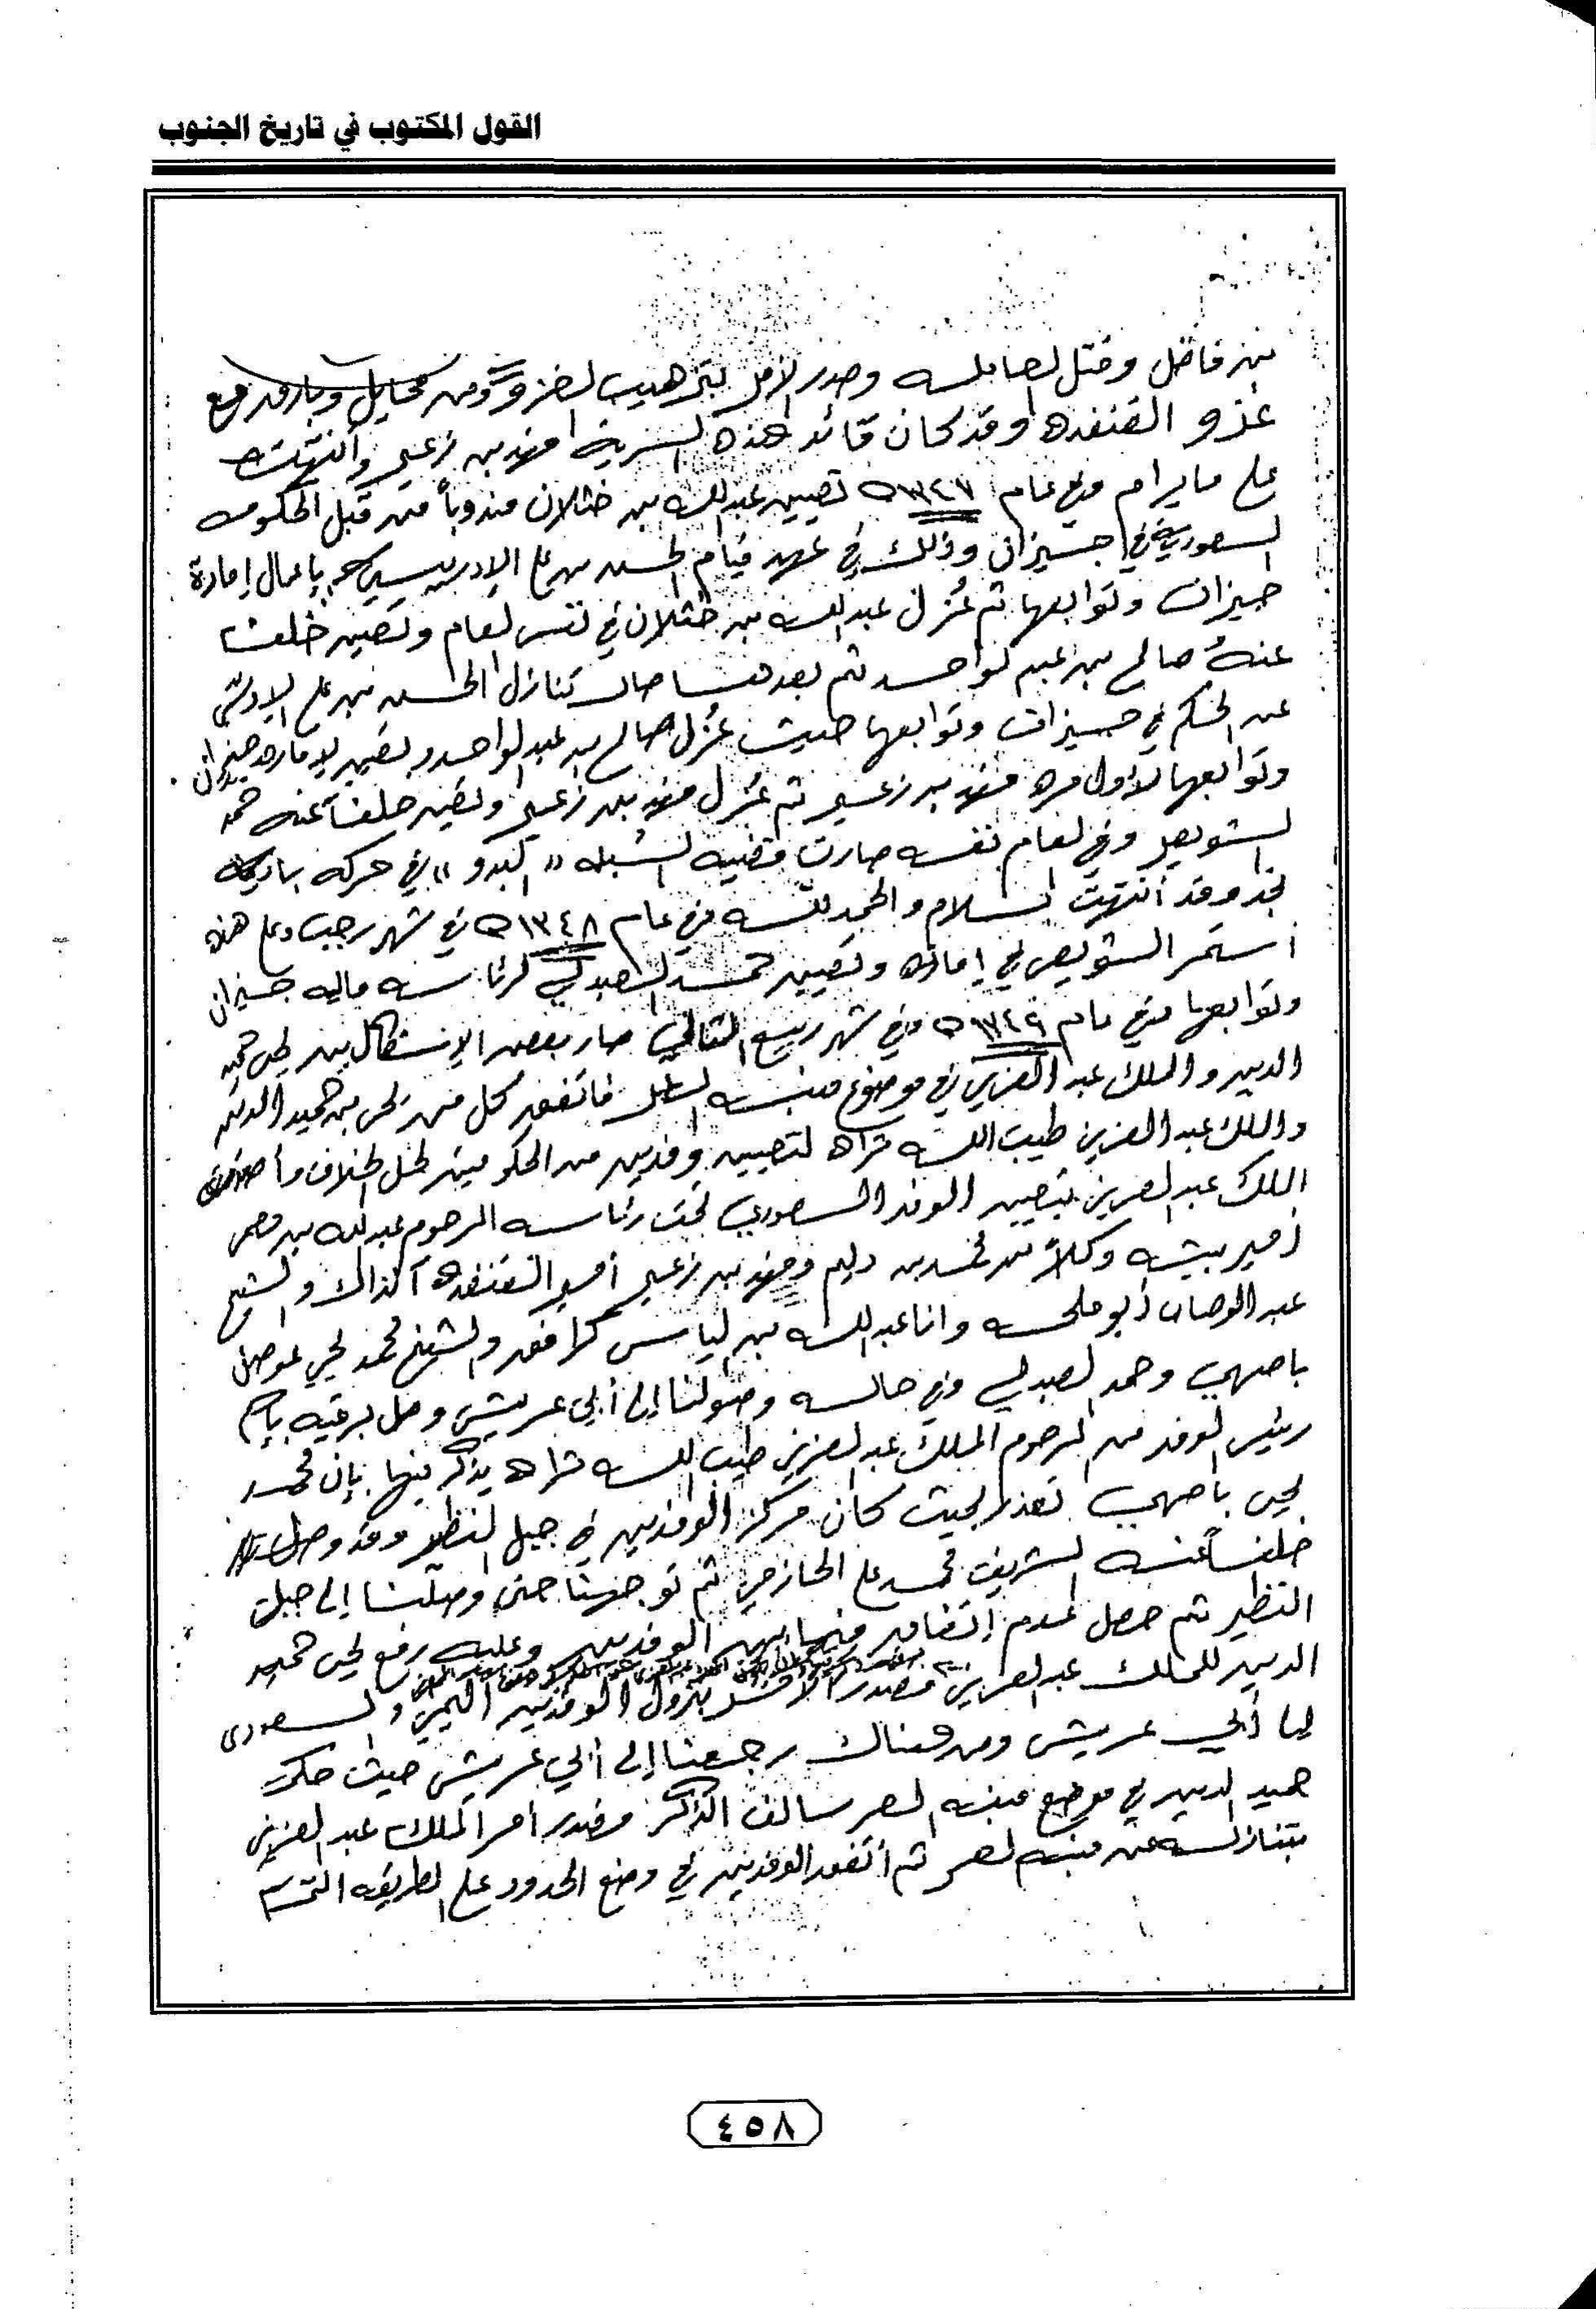 القول المكتوب في تاريخ الجنوب
بن فاضل وقتل لعامله وصدر الأمر بتذهيب لغزو ومن محايل وبارق مع
غزو القنفده وقد كان قائد هذه السرية فهد بن زعير وأنتهت
على ما يرام وفي عام ١٣٤٧ه تعيين عبدالله بن خثلان مندوباً من قبل الحكومه
السعودية في جيزان وذلك في عهد قيام الحسن بن علي الإدريسي بإعمال إمارة
جيزان وتوابعها ثم عُزل عبدالله بن خثلان في نفس لعام وتعين خلفاً
عنهُ صالح بن عبدلواحد ثم بعدها صار تنازل الحسن بن علي الإدريسي
عن الحكم في جيزان وتوابعها حيث عُزل صالح بن عبدالواحد وتعين لإماره جيزان
وتوابعها لأول مره فهد بن زعير ثم عُزل فهد بن زعير وتعين خلفاً عنه حمد
الشويعر وفي لعام نفسه صارت قضيه الشبله "البدو" في حركه باديه
نجد وقد أنتهت بسلام والحمدلله وفي عام ١٣٤٨ه في شهر رجب وعلى هذه
أستمر الشويعر في إماره وتعيين حمد لعبدلي لرئاسه ماليه جيزان
وتوابعها وفي عام ١٣٤٩ه وفي شهر ربيع الثاني صار بعض الإشكال بين يحي حميد
الدين والملك عبدالعزيز في موضوع منبه فاتفق كل من يحي بن حميد الدين
والملك عبدالعزيز طيب الله ثراه لتعيين وفدين من الحكومين لحل لخلاف وأ
الملك عبدالعزيز بتعيين الوفد السعودي تحت رئاسه المرحوم عبدالله بن معمر
أمير بيشه وكلاً من محمد بن دليم وفهد بن زعير أمير القنفده آنذاك والشيخ
عبدالوهاب أبو ملحه وانا عبدالله بن إلياس كرافق والشيخ محمد يحي عوض
باصهي وحمد لعبدلي وفي حاله وصولنا إلى أبي عريش وصل برقيه بإسم
رئيس لوفد من المرحوم الملك عبدالعزيز طيب الله ثراه يذكر فيها بإن محمد
يحي باصهي تعذر بحيث كان مركز الوفدين في جبل لنظير وقد وصل
خلفاً عنه الشريف محمد علي الحازمي ثم توجهنا حتى وصلنا إلى جبل
النظير ثم حصل عدم إتفاق فيما بين الوفدين وعليه رفع يحي حميد
الدين للملك عبدالعزيز فصدر الأمر بنزول الوفدين اليمني والسعودي
إلى أبي عريش ومن هناك رجعنا إلى أبي عريش حيث
حميد الدين في موضع منبه لعر سالف الذكر فصدر أمر الملك عبدالعزيز
بتنازله عن منبه لعر ثم أتفق الوفدين في وضع الحدود على لطريقه
٤٥٨